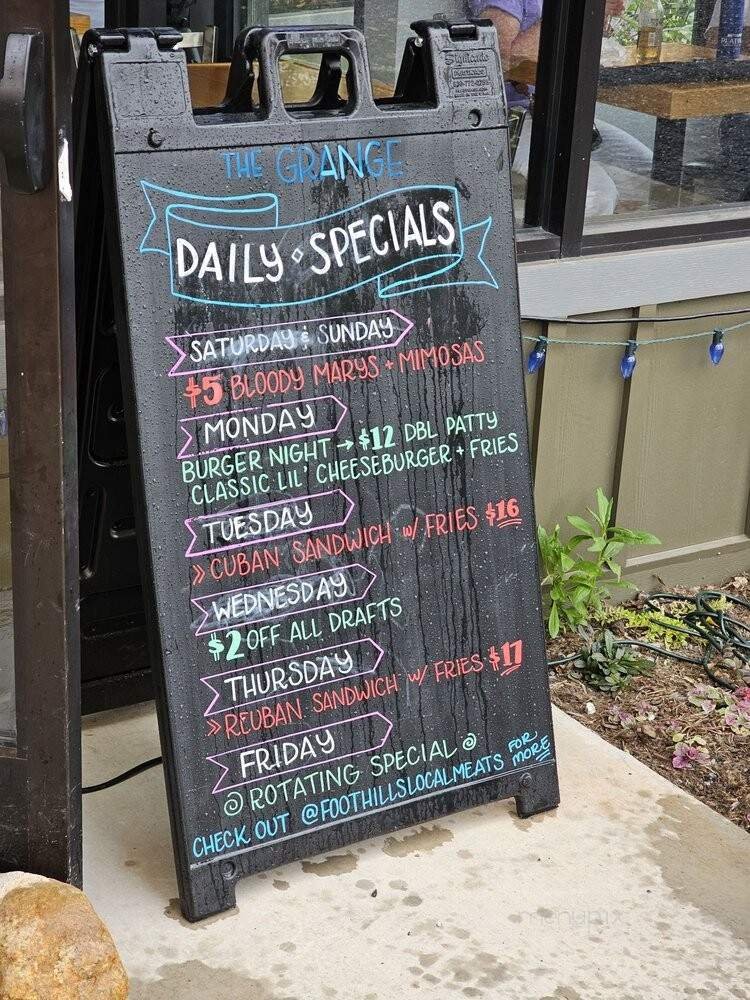 THE GRANGE
DAILY ◇ SPECIALS
SATURDAY & SUNDAY
$5 BLOODY MARYS + MIMOSAS
MONDAY
BURGER NIGHT → $12 DBL PATTY
CLASSIC LIL' CHEESEBURGER + FRIES
TUESDAY
» CUBAN SANDWICH w/ FRIES $16
WEDNESDAY
$2 OFF ALL DRAFTS
THURSDAY
» REUBAN SANDWICH w/ FRIES $17
FRIDAY
ROTATING SPECIAL
CHECK OUT @FOOTHILLSLOCALMEATS FOR MORE